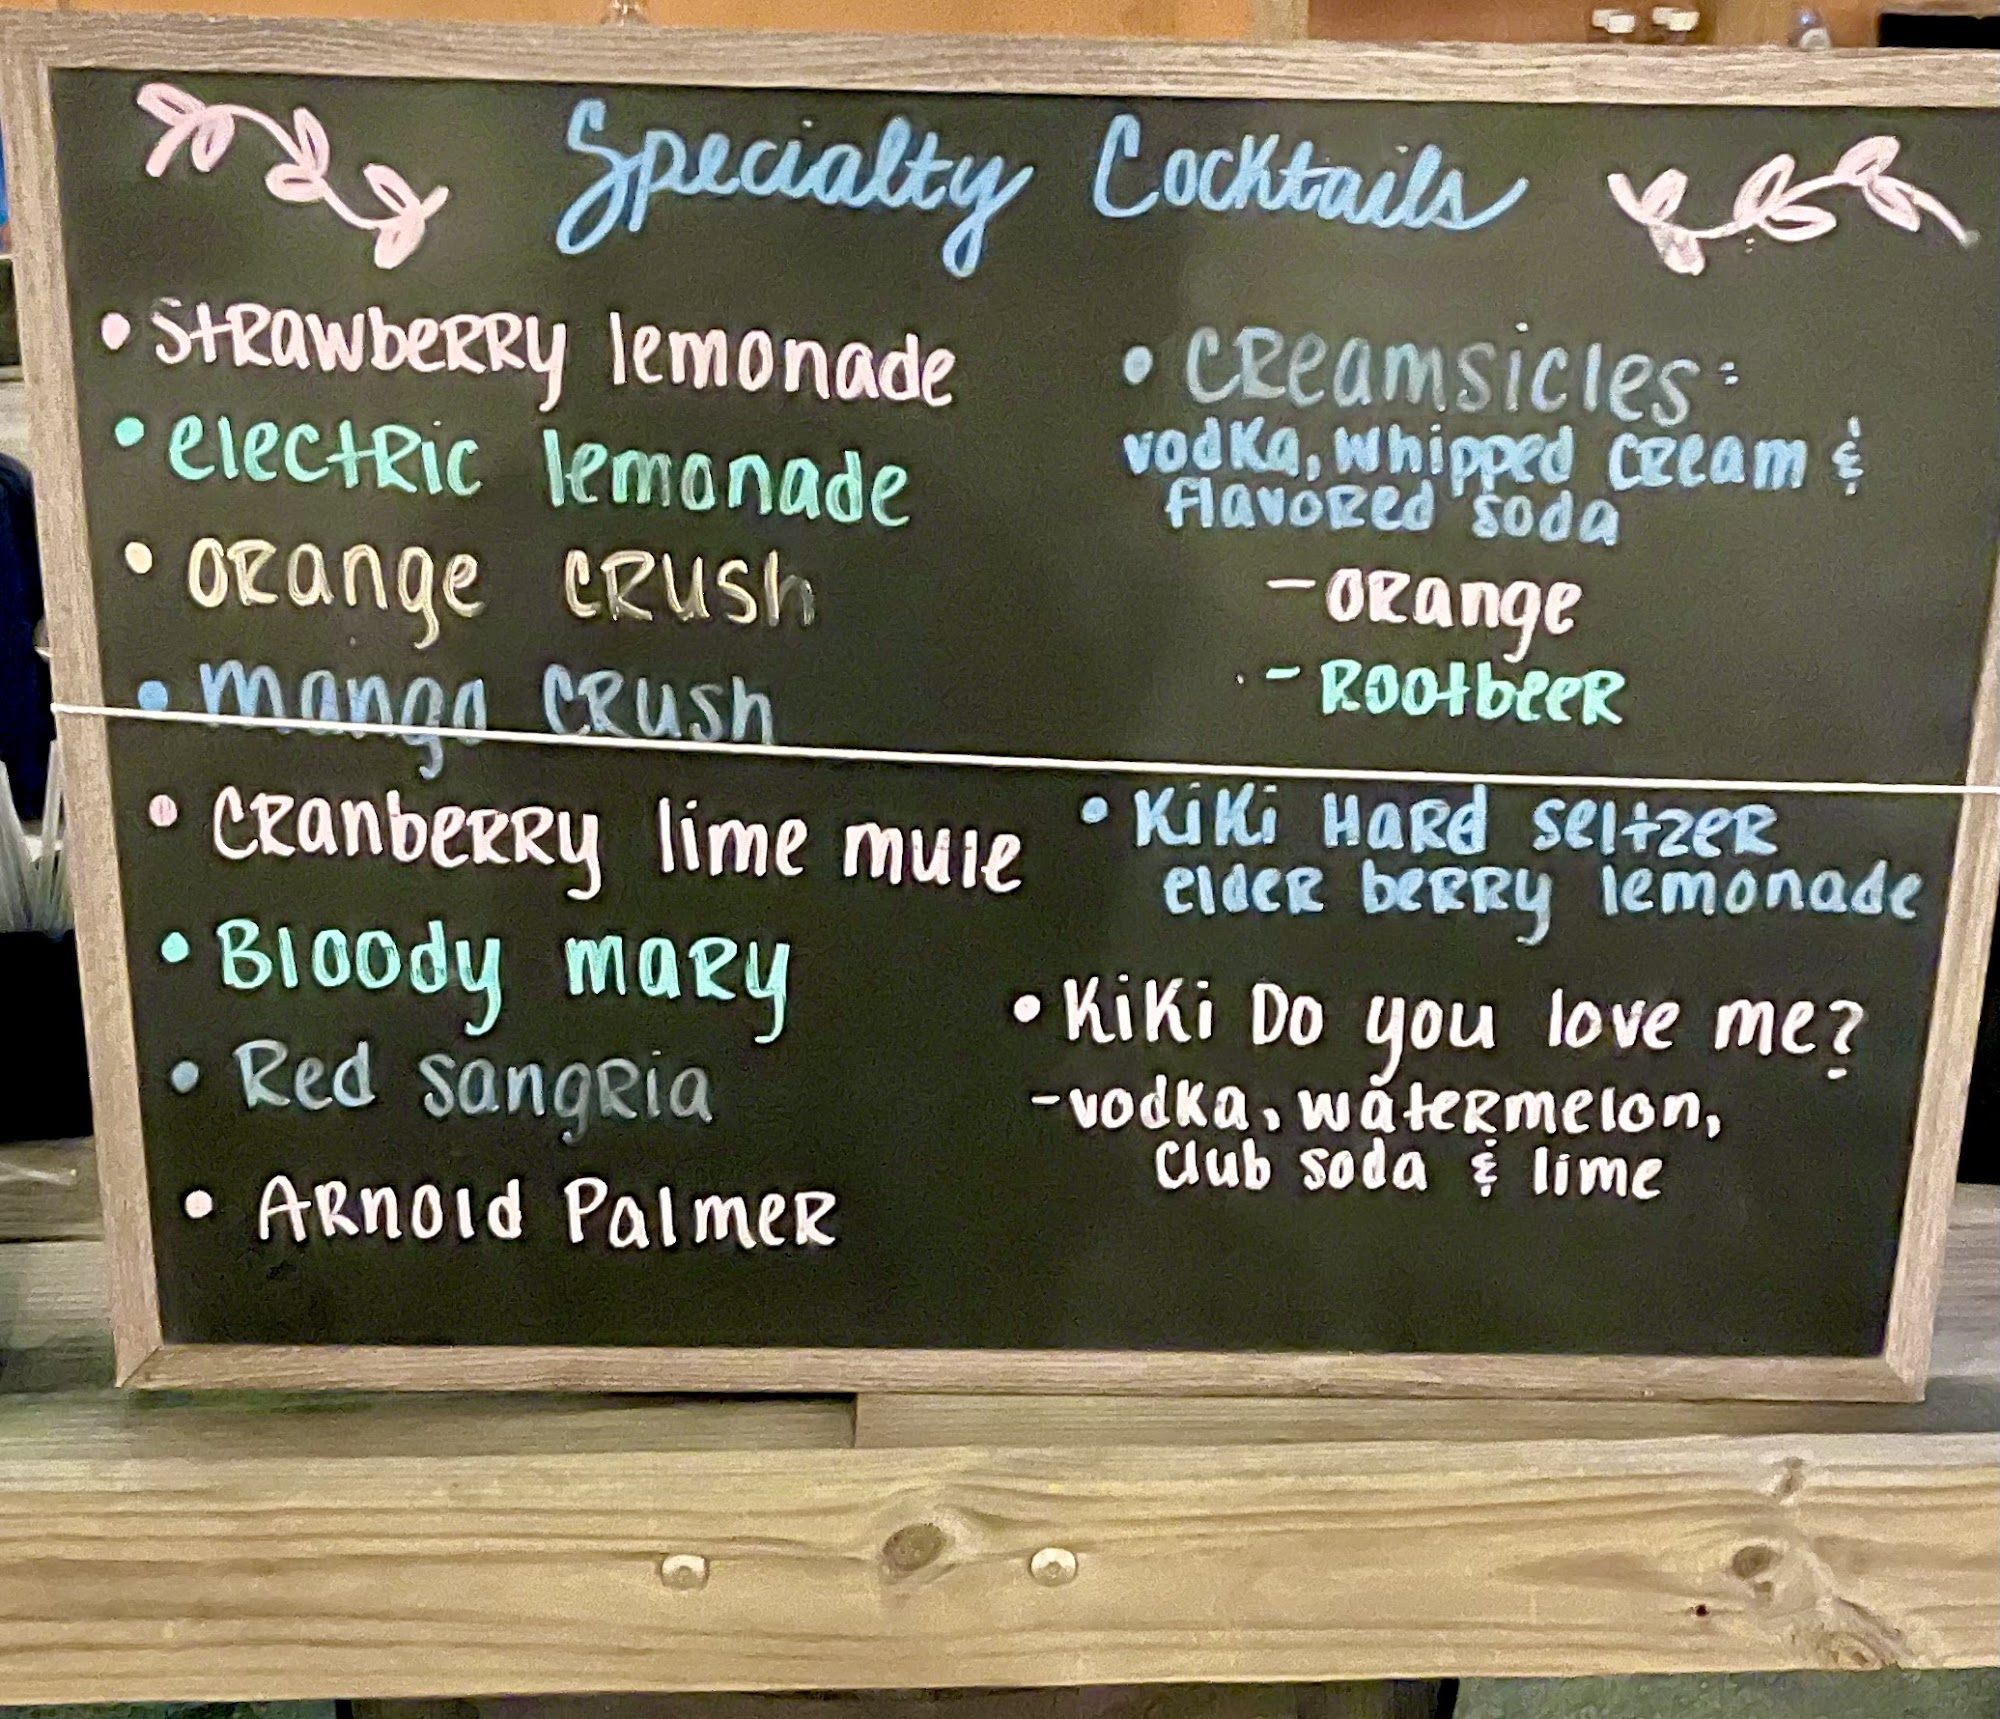 Specialty Cocktails
• Strawberry lemonade
• electric lemonade
• orange crush
• mango crush
• Cranberry lime mule
• Bloody mary
• Red sangria
• Arnold Palmer
• Creamsicles:
vodka, whipped cream &
flavored soda
- orange
- Rootbeer
• Kiki Hard seltzer
elder berry lemonade
• Kiki Do you love me?
- vodka, watermelon,
club soda & lime